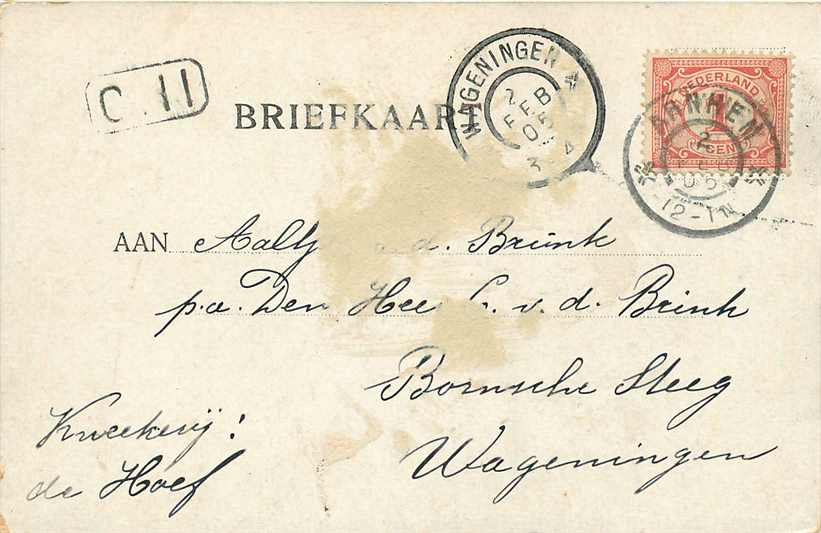 C II
BRIEFKAART
WAGENINGEN
2 FEB 05
3 4
NEDERLAND
1
CENT
ARNHEM
2
05
12-1N
AAN Aaltj d. Brink
p.a. Den Hee v. d. Brink
Bornsche Steeg
Wageningen
Kweekerij:
de Hoef